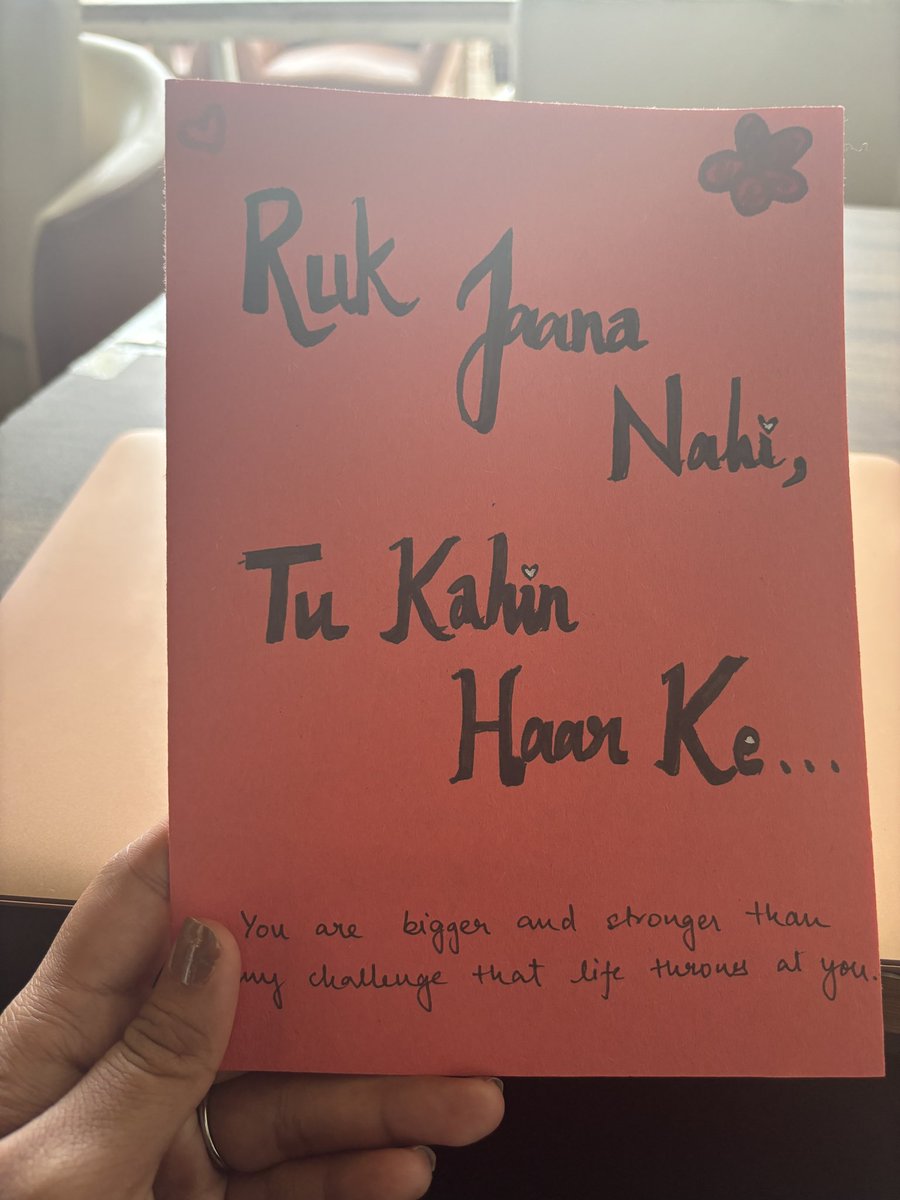 Ruk Jaana
Nahi,
Tu Kahin
Haar Ke...
You are bigger and stronger than
any challenge that life throws at you.